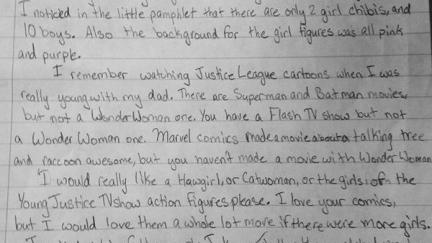 I noticed in the little pamphlet that there are only 2 girl chibis, and
10 boys. Also the background for the girl figures was all pink
and purple.
I remember watching Justice League cartoons when I was
really young with my dad. There are Superman and Batman movies,
but not a Wonder Woman one. You have a Flash TV show but not
a Wonder Woman one. Marvel comics made a movie about a talking tree
and raccoon awesome, but you haven't made a movie with Wonder Woman
I would really like a Hawgirl, or Catwoman, or the girls of the
Young Justice TV show action figures please. I love your comics,
but I would love them a whole lot more if there were more girls.